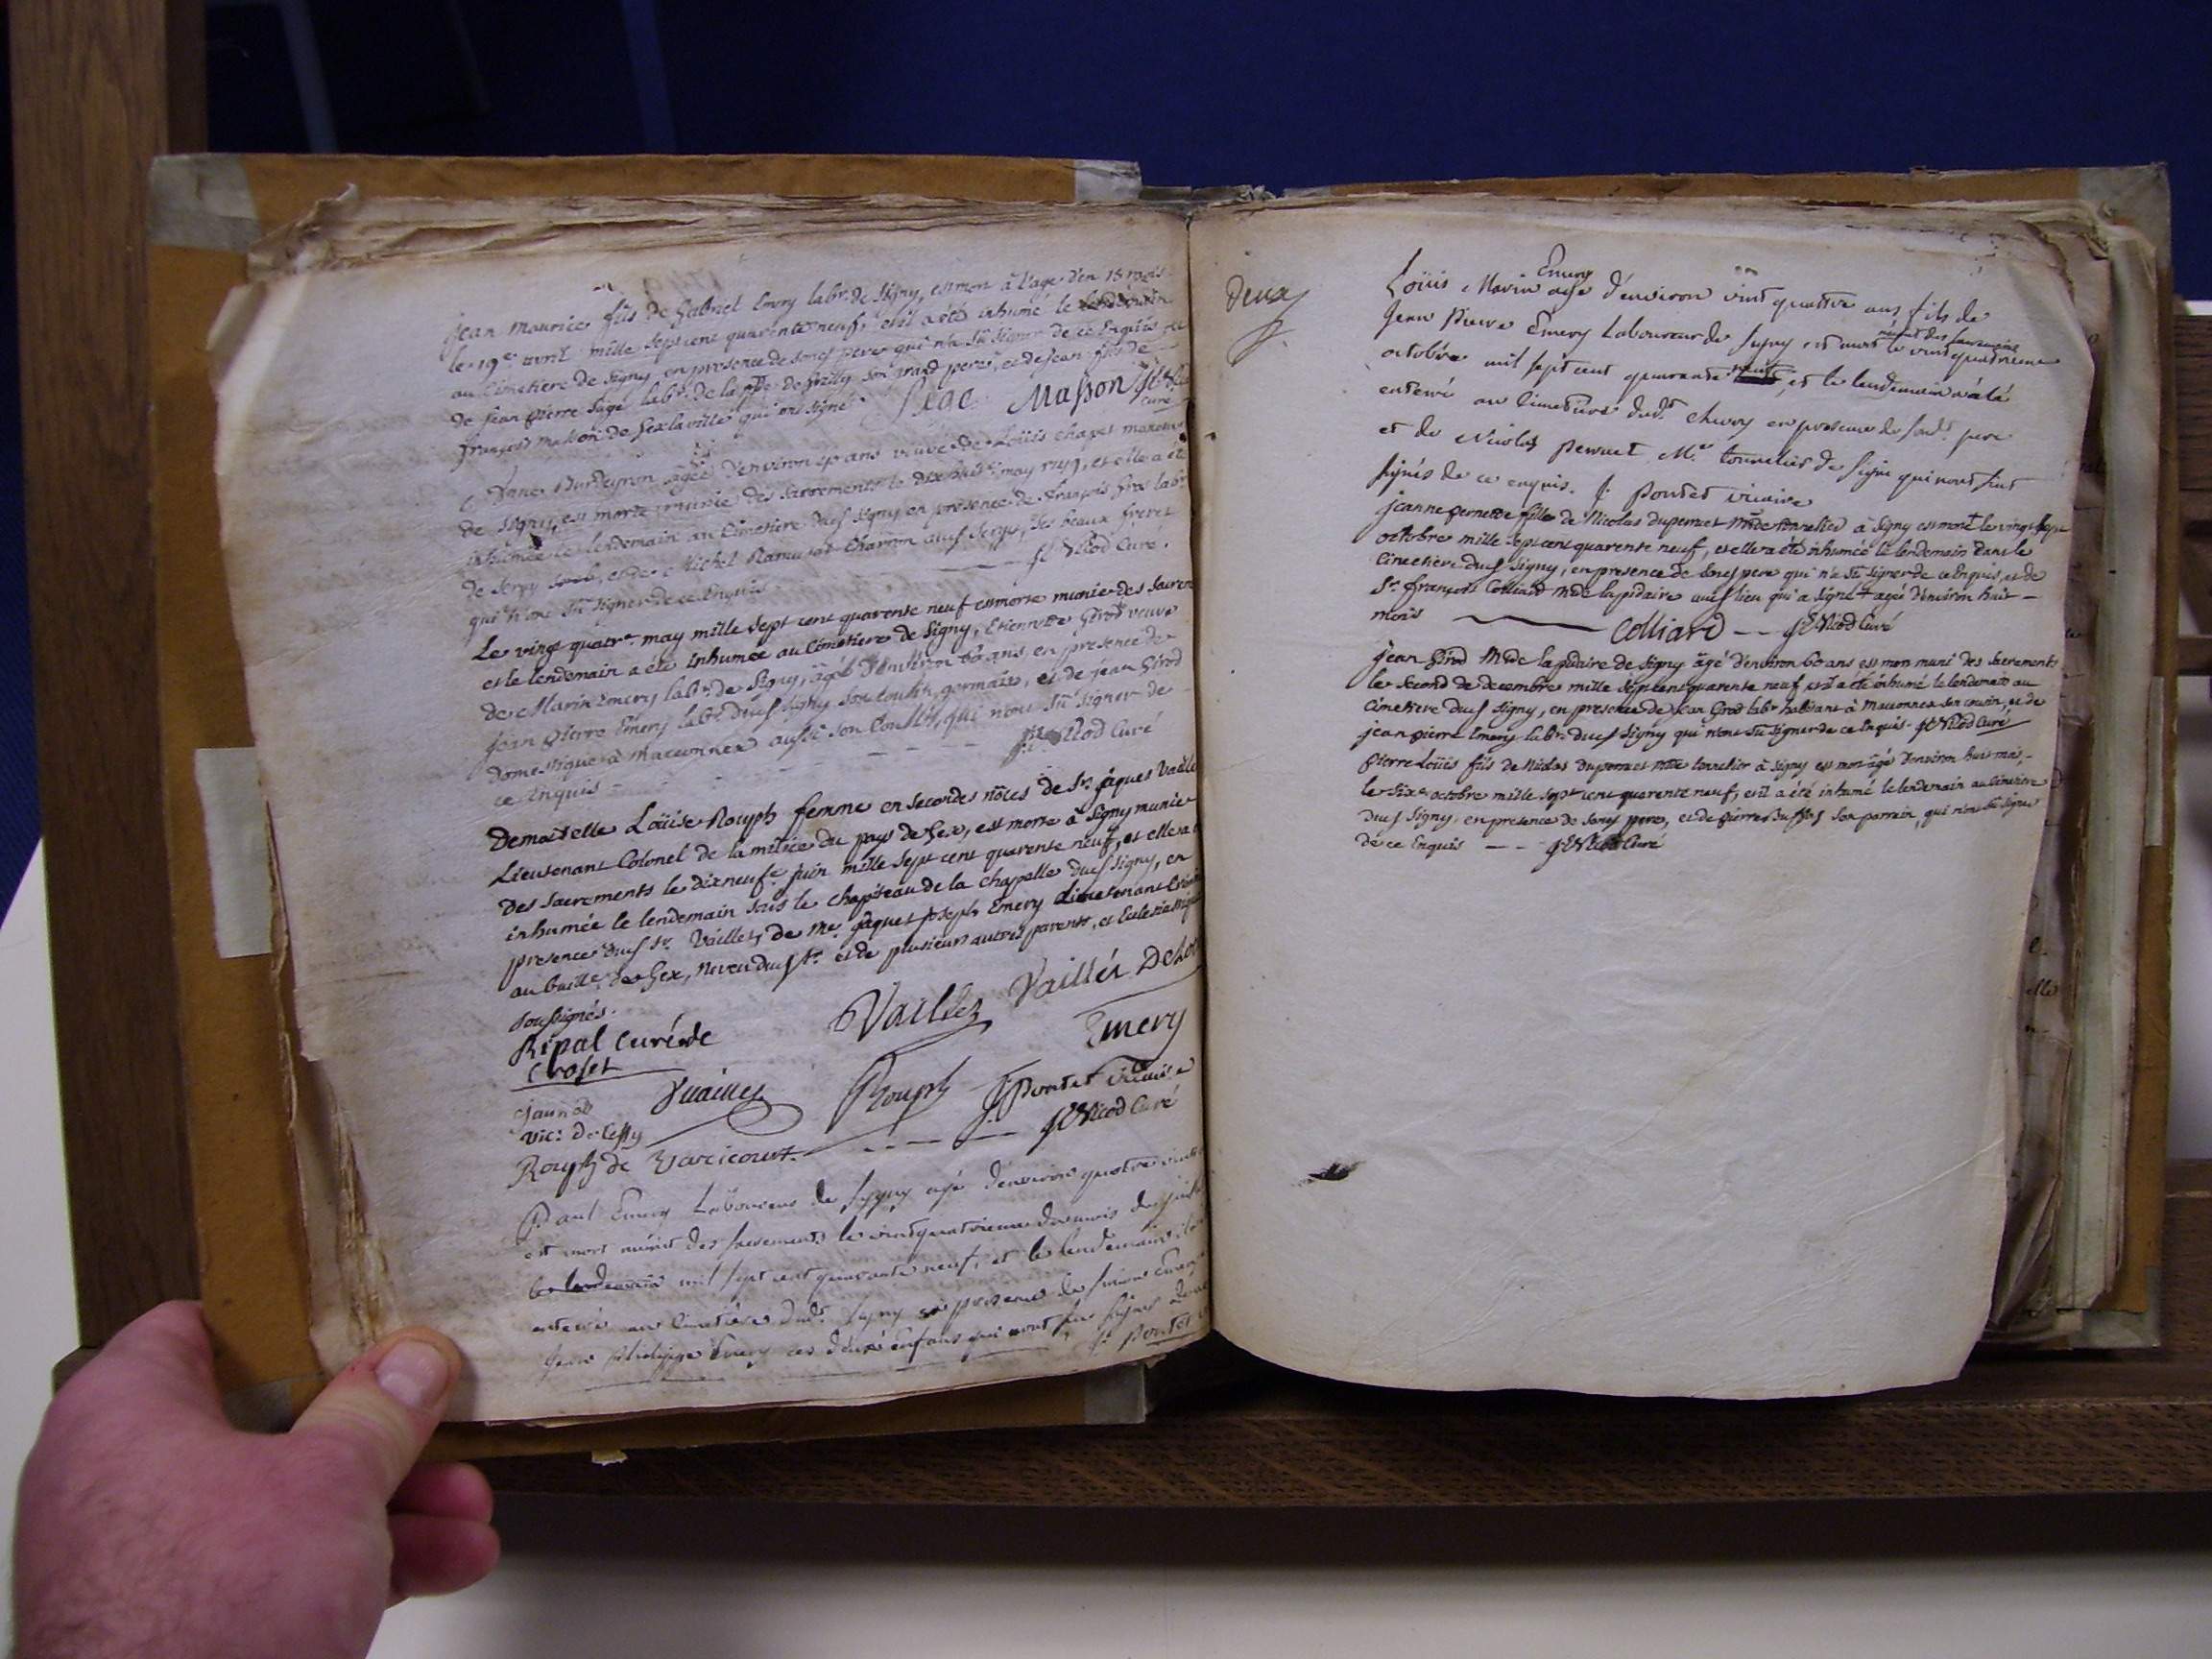 jean maurice fils de gabriel Emery labr. de Signy, est mort à l'age d'en 18 mois
le 19e avril mille sept cent quarente neuf, et il a été inhumé le lendemain
au Cimetiere de Signy en presence de sond pere qui n'a sû signer de ce Enquis
de jean pierre Sage labr. de son grand pere, et de jean fils de
françois masson de Gex la ville qui ont signé
Sege Masson
curé
Anne Burdeyron agée d'environ 40 ans veuve de Loüis chapes
de Signy, est morte munie des sacrements le dixhuite may 1749, et elle a été
inhumée le lendemain au Cimetiere dud Signy en presence de françois labr
de Sergy et de Michel Ramusat Charron aud Sergy, ses beaux freres
qui n'ont sû signer de ce Enquis Nicod Curé.
Le vingt quatre may mille sept cent quarente neuf est morte munie des sacrem
et le lendemain a été inhumée au Cimetiere de Signy, Etiennette Girod veuve
de Marin Emery labr de Signy, agée d'environ 60 ans, en presence de
jean pierre Emery labr dud Signy son cousin germain, et de jean Girod
domestique à Maconnex aussi son Cousin, qui n'ont sû signer de
ce Enquis Nicod Curé
Demoiselle Loüise Rouph femme en secondes nôces de Sr. jâques Vaillet
Lieutenant Colonel de la milice du pays de Gex, est morte à Signy munie
des sacrements le dixneufe juin mille sept cent quarente neuf, et elle a
inhumée le lendemain sous le chapiteau de la chappelle dud Signy, en
presence dud Sr. Vaillet, de Me. jâques joseph Emery Lieutenant
au baille. de Gex, neveu dud Sr. et de plusieurs autres parents, et Eclesiastiq
soussignés.
Ripal curé de
Croset
Vaillet Vaillét
Emery
Rouph J: Pontet vicaire
vic: de Cessy
Rouph de Varicourt. Nicod Curé
Paul Emery Laboureur de Signy agé d'environ quatre vint
est mort munit des sacrements le vintquatrieme du mois de
le lendemain mil sept cent quarante neuf, et le lendemain
enterré au cimetiere dud. Signy en presence de Emery
jean philippe Emery ces deux enfans qui n'ont sus signer
J: Pontet
deux
Emery
Loüis Marin age d'environ vint quattre ans fils de
Jean Pierre Emery Laboureur de Signy est mort munit des sacrements le vint quatrieme
octobre mil sept cent quarante neuf, et le lendemain a été
enterré au cimetiere dud. en presence de sond. pere
et de Nicolas Perruet Me. tourelier de Signi qui n'ont sut
signés de ce enquis. J: Pontet vicaire
jeanne pernette fille de Nicolas duperruet tourelier à Signy est morte + le vingt sept
octobre mille sept cent quarente neuf, et elle a été inhumée le lendemain dans le
Cimetiere dud Signy, en presence de sond pere qui n'a sû signer de ce Enquis, et de
Sr. françois Colliard mde lapidaire aud lieu qui a signé + agée d'environ huit
mois Colliard Nicod Curé
jean Girod Mde lapidaire de Signy âgé d'environ 60 ans est mort muni des sacrements
le second de decembre mille sept cent quarente neuf, et il a été inhumé le lendemain au
Cimetiere dud Signy, en presence de jean Girod labr habitant à Maconnex son cousin, et de
jean pierre Emery labr. dud Signy qui n'ont sû signer de ce Enquis. Nicod Curé
pierre Loüis fils de Nicolas duperruet tourelier à Signy est mort âgé d'environ huit mois,
le sixe octobre mille sept cent quarente neuf, et il a été inhumé le lendemain au Cimetiere
dud Signy, en presence de sond pere, et de pierre son parrain, qui n'ont sû signer
de ce Enquis Nicod Curé